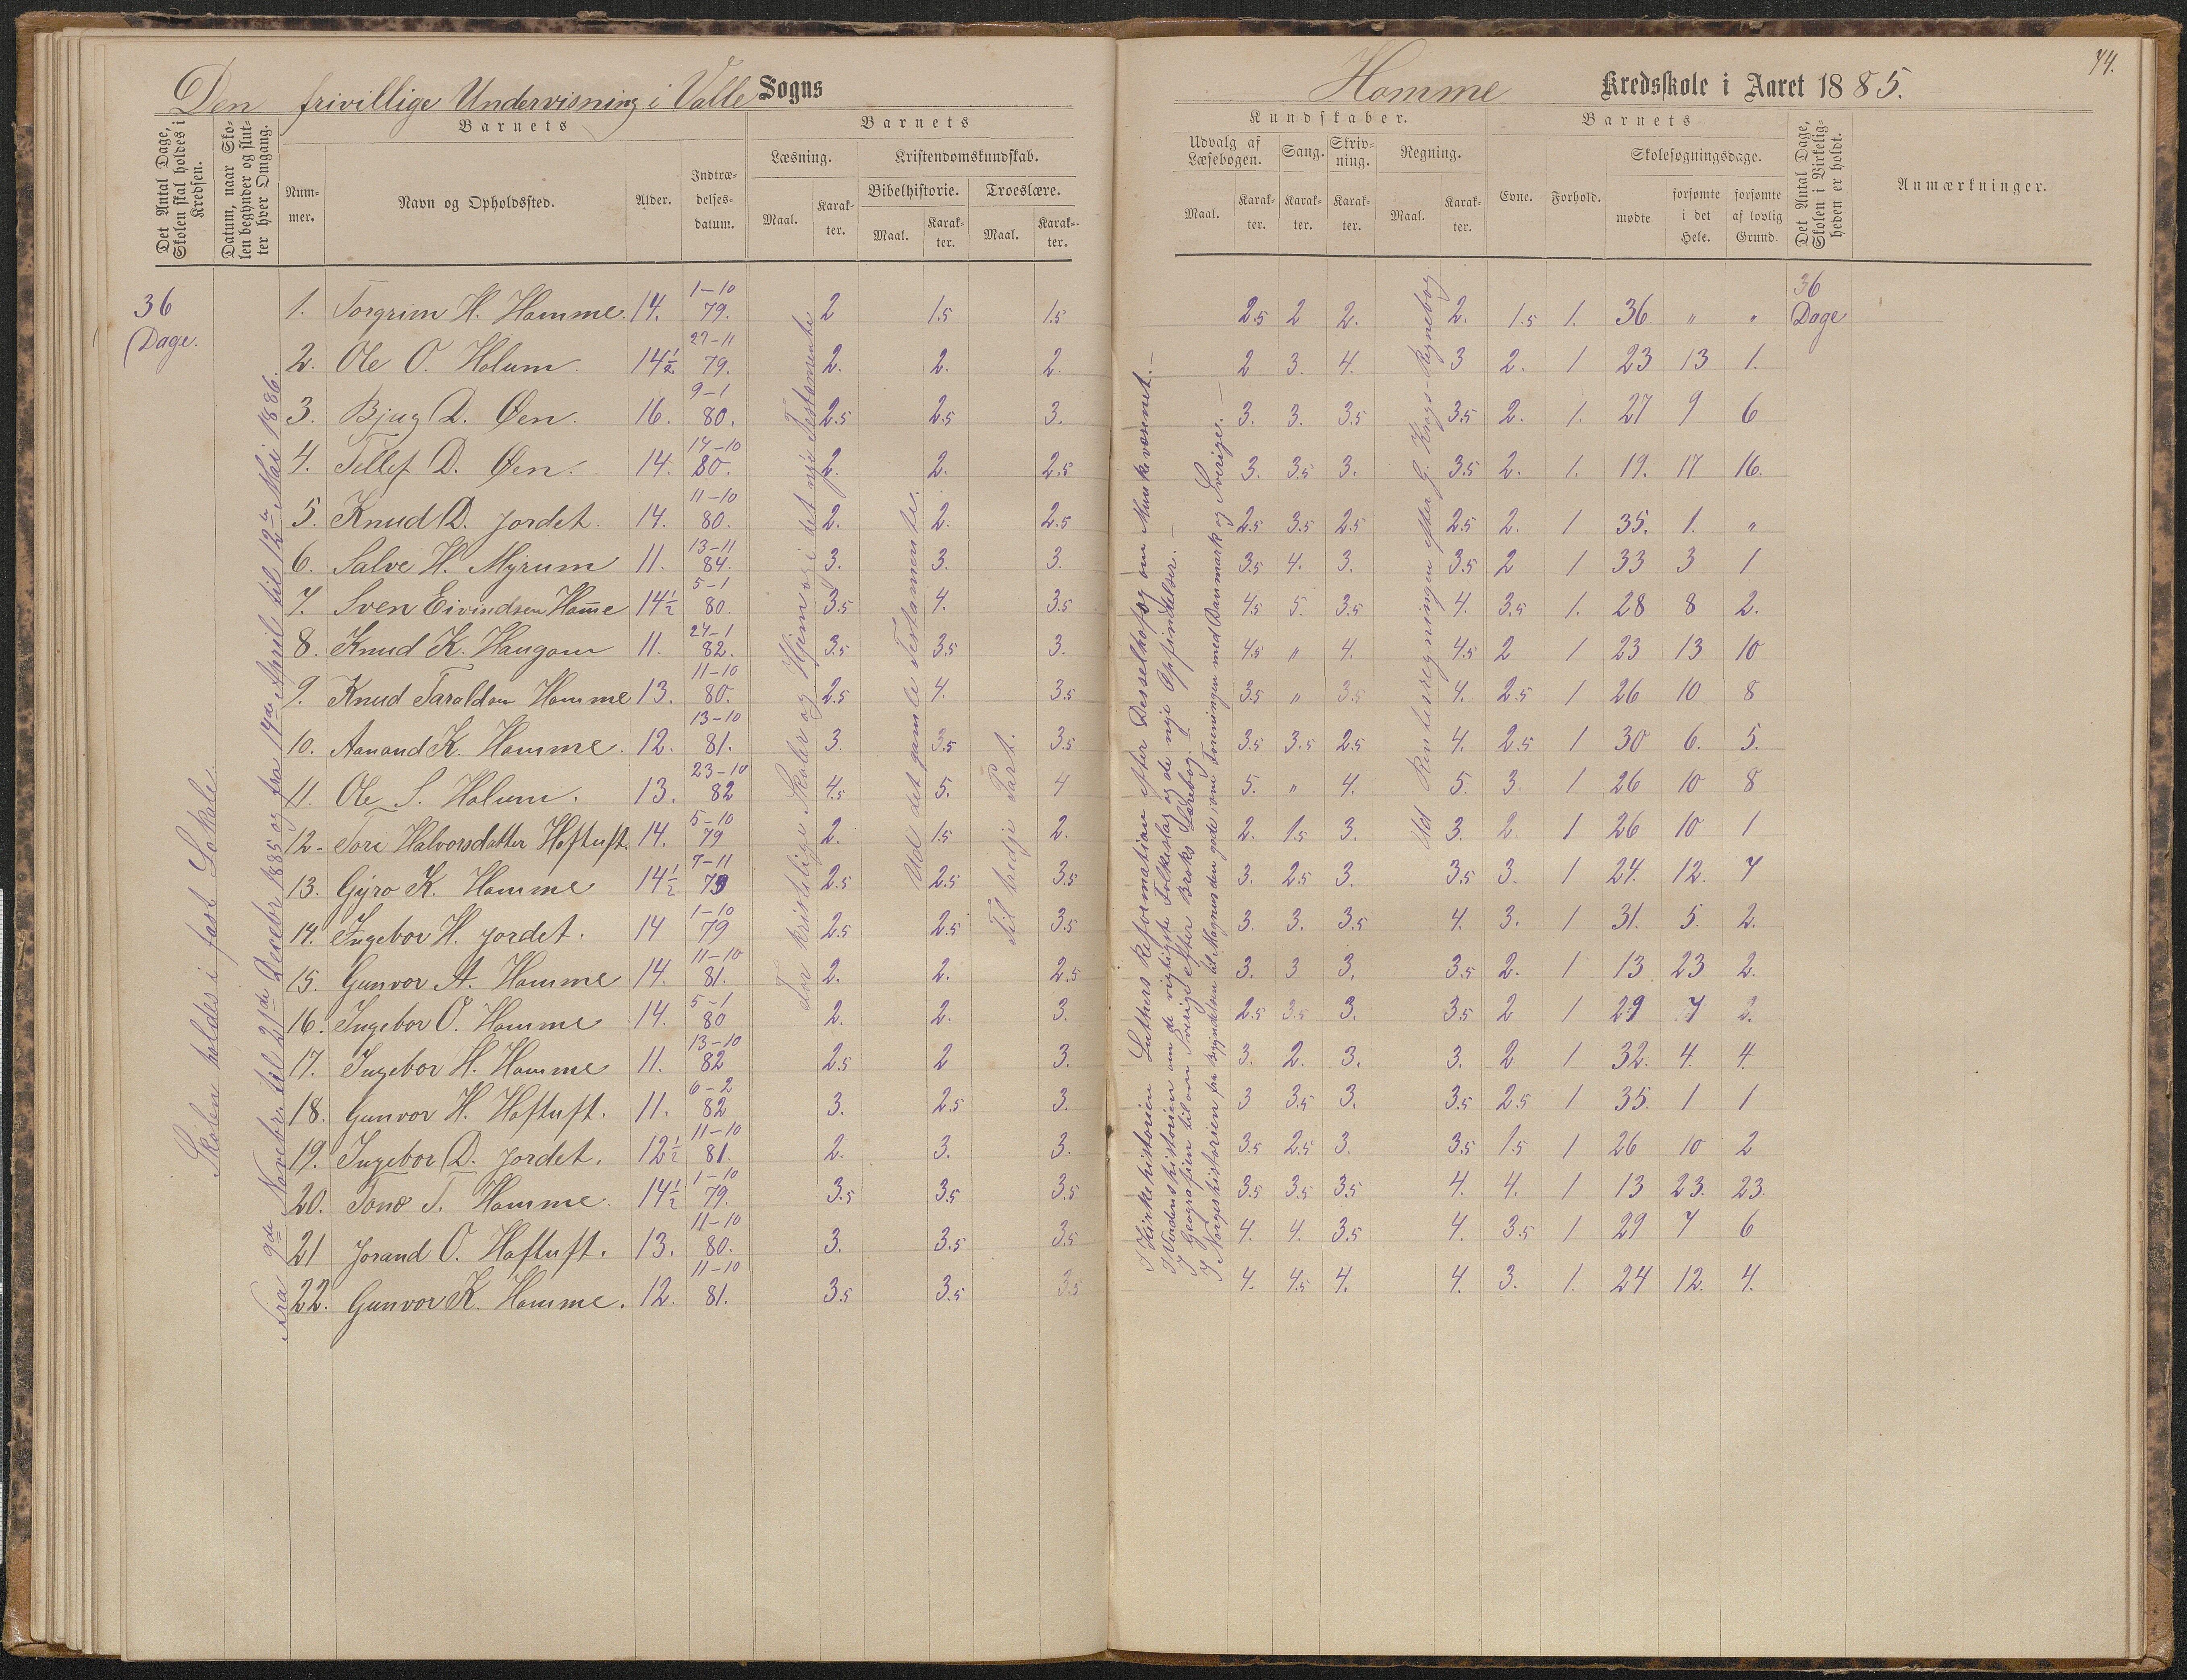 Den frivillige Undervisning i Valle Sogns
Homme Kredsskole i Aaret 1885.
74.
Det Antal Dage, Skolen skal holdes i Kredsen.
Datum, naar Skolen begynder og slutter hver Omgang.
Barnets
Nummer.
Navn og Opholdssted.
Alder.
Indtrædelsesdatum.
Barnets
Læsning.
Maal.
Karakter.
Kristendomskundskab.
Bibelhistorie.
Maal.
Karakter.
Troeslære.
Maal.
Karakter.
Kundskaber.
Udvalg af Læsebogen.
Maal.
Karakter.
Sang.
Karakter.
Skrivning.
Karakter.
Regning.
Maal.
Karakter.
Barnets
Evne.
Forhold.
Skolesøgningsdage.
mødte
forsømte i det Hele.
forsømte af lovlig Grund.
Det Antal Dage, Skolen i Virkeligheden er holdt.
Anmærkninger.
36 Dage.
Skolen holdes i fast Lokale.
Fra 9de Novebr. til 21de Decebr. 1885 og fra 14de April til 12te Mai 1886.
For kristelige Skoler og Hjem og i det nye Testamente
Ud det gamle Testamente.
Til tredje Part.
I Kirkehistorien Luthers Reformation efter Desselhof og om Munkevæsenet.
I Verdenshistorien om de vigtigste Folkeslag og de nye Opfindelser.
I Geografien til om Sverige efter Broks Lærebog.
I Norgeshistorien fra Begyndelsen til Magnus den gode, om Foreningen med Danmark og Sverige.
Ud Rentesregningen efter J. Krogs Regnebog
36 Dage
1. Torgrim H. Homme. 14. 1-10 79. 2 1.5 1.5 2.5 2 2. 2. 1.5 1. 36 " "
2. Ole O. Holum. 14½ 27-11 79. 2. 2. 2. 2 3. 4. 3 2. 1 23 13 1.
3. Bjug D. Øen. 16. 9-1 80. 2.5 2.5 3. 3. 3. 3.5 3.5 2. 1. 27 9 6
4. Tellef D. Øen. 14. 14-10 80. 2. 2. 2.5 3. 3.5 3. 3.5 2. 1. 19. 17 16.
5. Knud D. Jordet. 14. 11-10 80. 2. 2. 2.5 2.5 3.5 2.5 2.5 2. 1 35. 1. "
6. Salve H. Myrum 11. 13-11 84. 3. 3. 3. 3.5 4. 3. 3.5 2 1 33 3 1
7. Sven Eivindsen Home 14½ 5-1 80. 3.5 4. 3.5 4.5 5. 3.5 4. 3.5 1. 28 8 2.
8. Knud K. Haugom 11. 24-1 82. 3.5 3.5 3. 4.5 " 4. 4.5 2 1 23 13 10
9. Knud Taraldsen Homme 13. 11-10 80. 2.5 4. 3.5 3.5 " 3.5 4. 2.5 1 26 10 8
10. Aanond K. Homme. 12. 13-10 81. 3. 3.5 3.5 3.5 3.5 2.5 4. 2.5 1 30 6. 5.
11. Ole S. Holum. 13. 23-10 82 4.5 5. 4 5. " 4. 5. 3. 1 26 10 8
12. Tori Halvorsdatter Hoftuft. 14. 5-10 79 2. 1.5 2. 2. 1.5 3. 3. 2. 1 26 10 1
13. Gyro K. Homme 14½ 7-11 79 2.5 2.5 3.5 3. 2.5 3. 3.5 3. 1 24. 12. 7
14. Ingebor H. Jordet. 14 1-10 79 2.5 2.5 3.5 3. 3. 3.5 4. 3. 1 31. 5. 2.
15. Gunvor A. Homme 14. 11-10 81. 2. 2. 2.5 3. 3 3. 3.5 2. 1 13 23 2.
16. Ingebor O. Homme 14. 5-1 80 2. 2. 3. 2.5 3.5 3. 3.5 2 1 29 7 2.
17. Ingebor H. Homme 11. 13-10 82 2.5 2 3. 3. 2. 3. 3. 2 1 32. 4. 4.
18. Gunvor H. Hoftuft. 11. 6-2 82 3. 2.5 3. 3 3.5 3. 3.5 2.5 1 35. 1 1
19. Ingebor D. Jordet. 12½ 11-10 81. 2. 3. 3. 3.5 2.5 3. 3.5 1.5 1 26 10 2
20. Tone T. Homme. 14½ 1-10 79. 3.5 3.5 3.5 3.5 3.5 3.5 4. 4. 1 13 23. 23.
21 Jorand O. Hoftuft. 13. 11-10 80. 3. 3.5 3.5 4. 4. 3.5 4. 3.5 1 29 7 6
22. Gunvor K. Homme. 12. 11-10 81. 3.5 3.5 3.5 4. 4.5 4. 4. 3. 1. 24 12. 4.